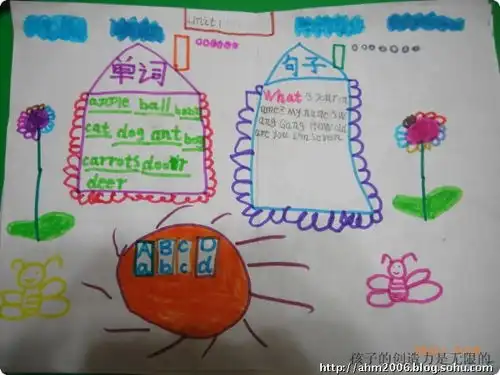 Unit1
单词
句子
apple ball
cat dog ant
carrots door
deer
What is your n
ame? My name is W
ang Gang How old
are you I'm seven.
A B C D
a b c d
孩子的创造力是无限的
http://ahm2006.blog.sohu.com